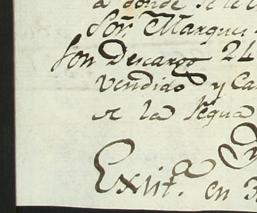 a donde se le
Sor. Marques
son Descargo 24
vendido y Ca
de la Segua
Exit.a en 3